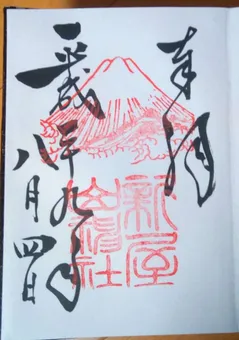 奉拝
平成二十九年
八月四日
新屋
山神社